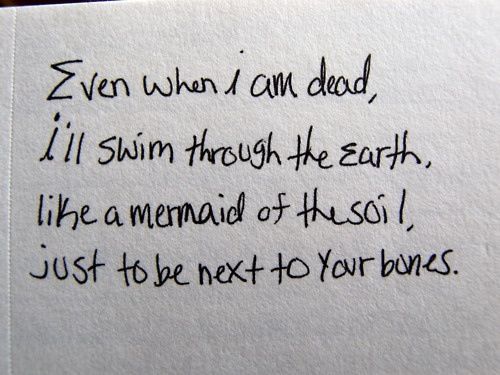 Even when i am dead,
i'll swim through the Earth,
like a mermaid of the soil,
just to be next to Your bones.